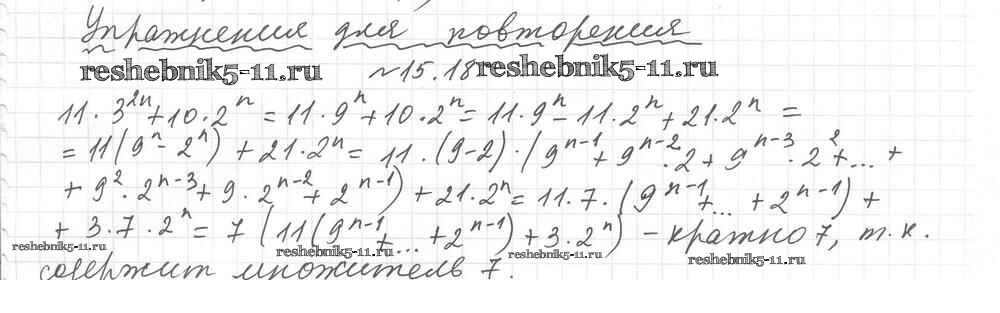 Упражнения для повторения
reshebnik5-11.ru №15.18 reshebnik5-11.ru
11·3²ⁿ+10·2ⁿ = 11·9ⁿ+10·2ⁿ = 11·9ⁿ-11·2ⁿ+21·2ⁿ =
= 11(9ⁿ-2ⁿ) + 21·2ⁿ = 11·(9-2)·(9ⁿ⁻¹+9ⁿ⁻²·2+9ⁿ⁻³·2²+...+
+ 9²·2ⁿ⁻³+9·2ⁿ⁻²+2ⁿ⁻¹) + 21·2ⁿ = 11·7·(9ⁿ⁻¹+...+2ⁿ⁻¹) +
+ 3·7·2ⁿ = 7 (11(9ⁿ⁻¹+...+2ⁿ⁻¹)+3·2ⁿ) - кратно 7, т.к.
reshebnik5-11.ru reshebnik5-11.ru reshebnik5-11.ru reshebnik5-11.ru
содержит множитель 7.